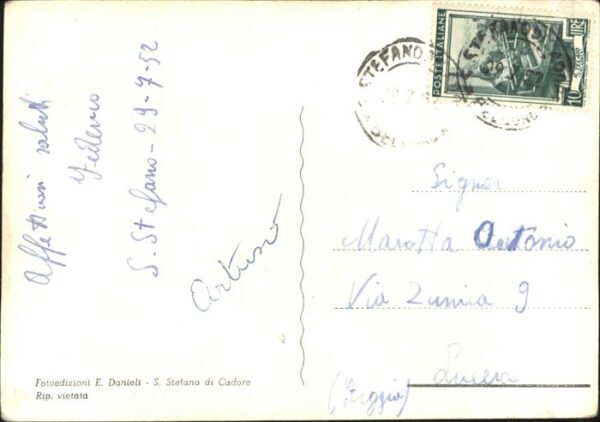 Affettuosi saluti
Federico
S. Stefano - 29-7-52
Arturo
Fotoedizioni E. Danieli - S. Stefano di Cadore
Rip. vietata
POSTE ITALIANE
LIRE
10
S. STEFANO DI
Signor
Marotta Antonio
Via Zunica 9
Lucera
(Foggia)